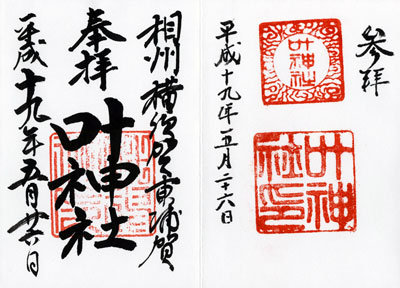 参拝
叶神社
叶神社印
平成十九年五月二十六日
相州横須賀東浦賀
奉拝
叶神社
平成十九年五月廿六日